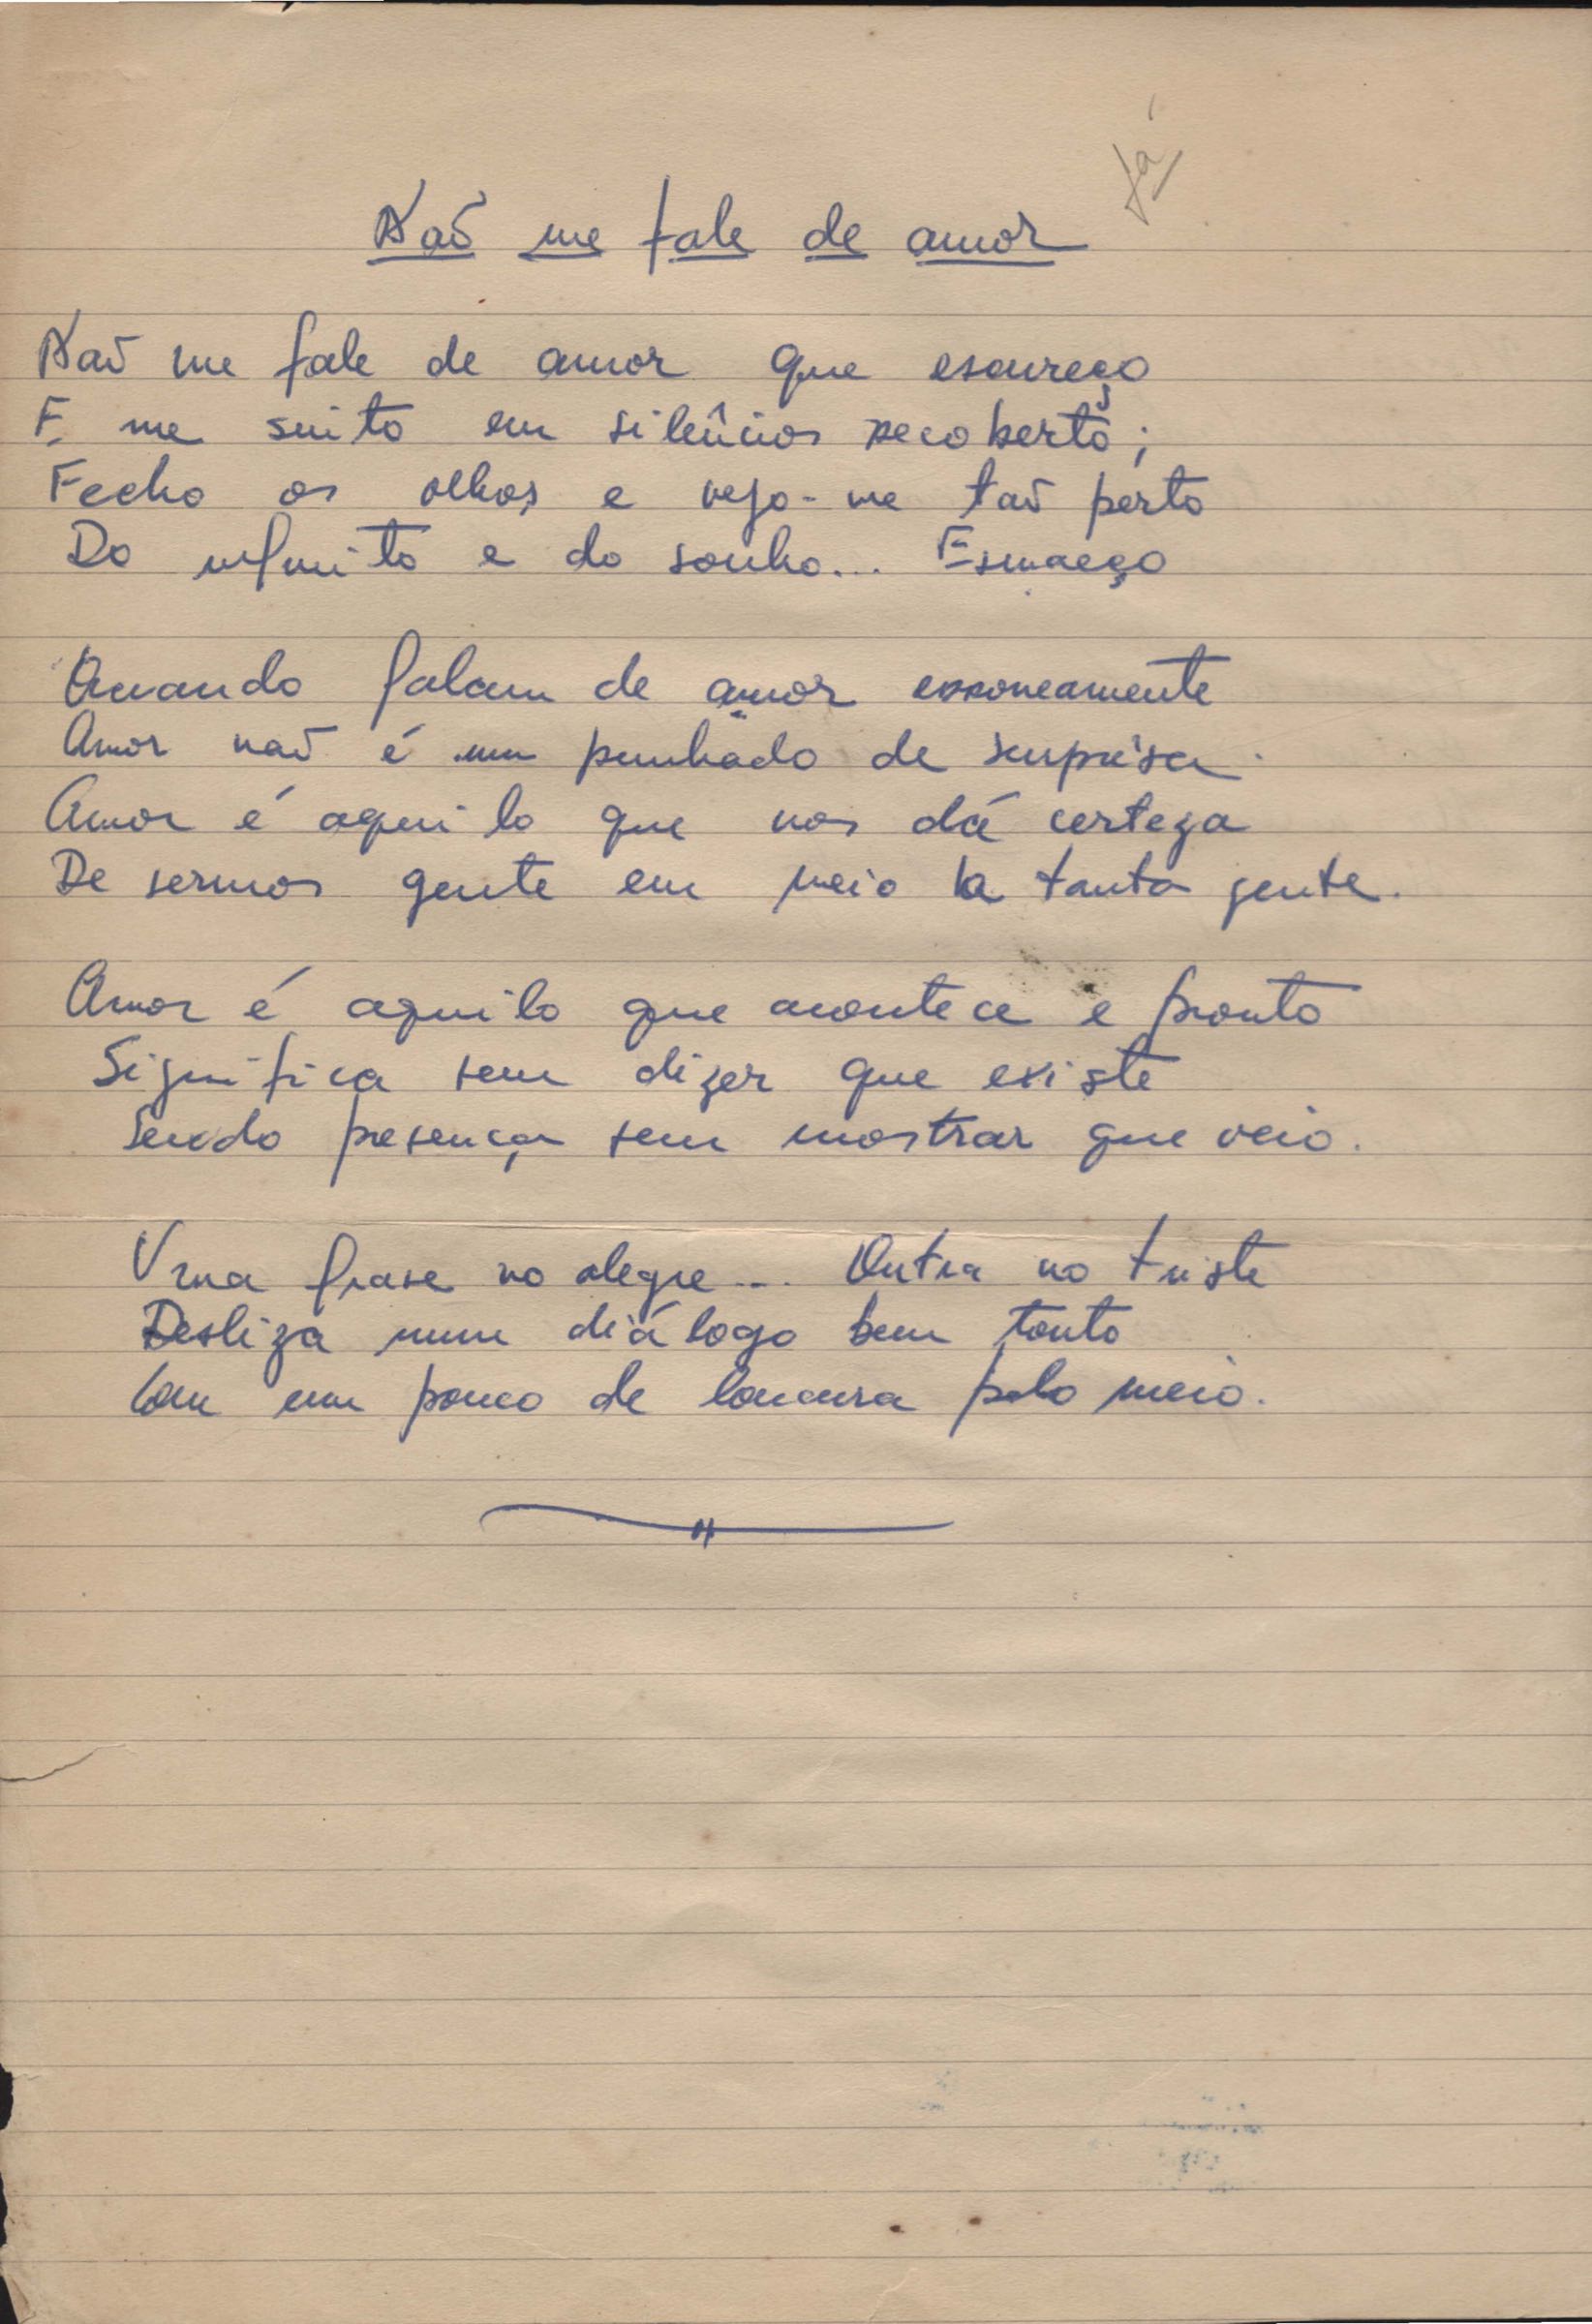 já
Não me fale de amor
Não me fale de amor que escureço
E me sinto em silêncios recobertos;
Fecho os olhos e vejo-me tão perto
Do infinito e do sonho... Esmaeço
Quando falam de amor erroneamente
Amor não é um punhado de surprêsa.
Amor é aquilo que nos dá certeza
De sermos gente em meio a tanta gente.
Amor é aquilo que acontece e pronto
Significa sem dizer que existe
Sendo presença sem mostrar que veio.
Uma frase no alegre... Outra no triste
Desliza num diálogo bem tonto
Com um pouco de loucura pelo meio.